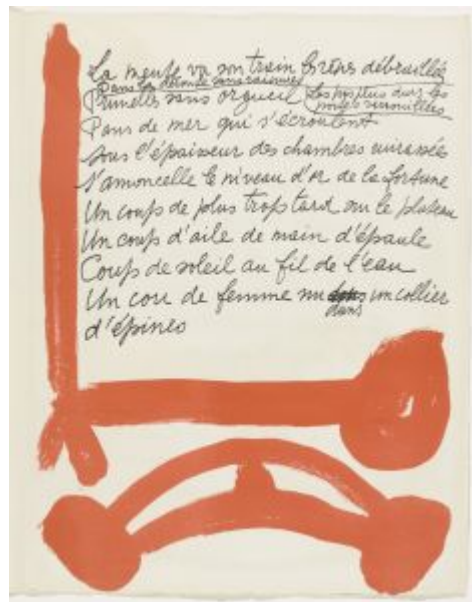 La meute va son train débraillée
Dans les sans
Prunelles sans orgueil Les plus durs les
verrouillées
Pans de mer qui s'écroulent
Sous l'épaisseur des chambres cuirassées
S'amoncelle le niveau d'or de la fortune
Un coup de plus trop tard sur le plateau
Un coup d'aile de main d'épaule
Coup de soleil au fil de l'eau
Un cou de femme nu un collier
dans
d'épines